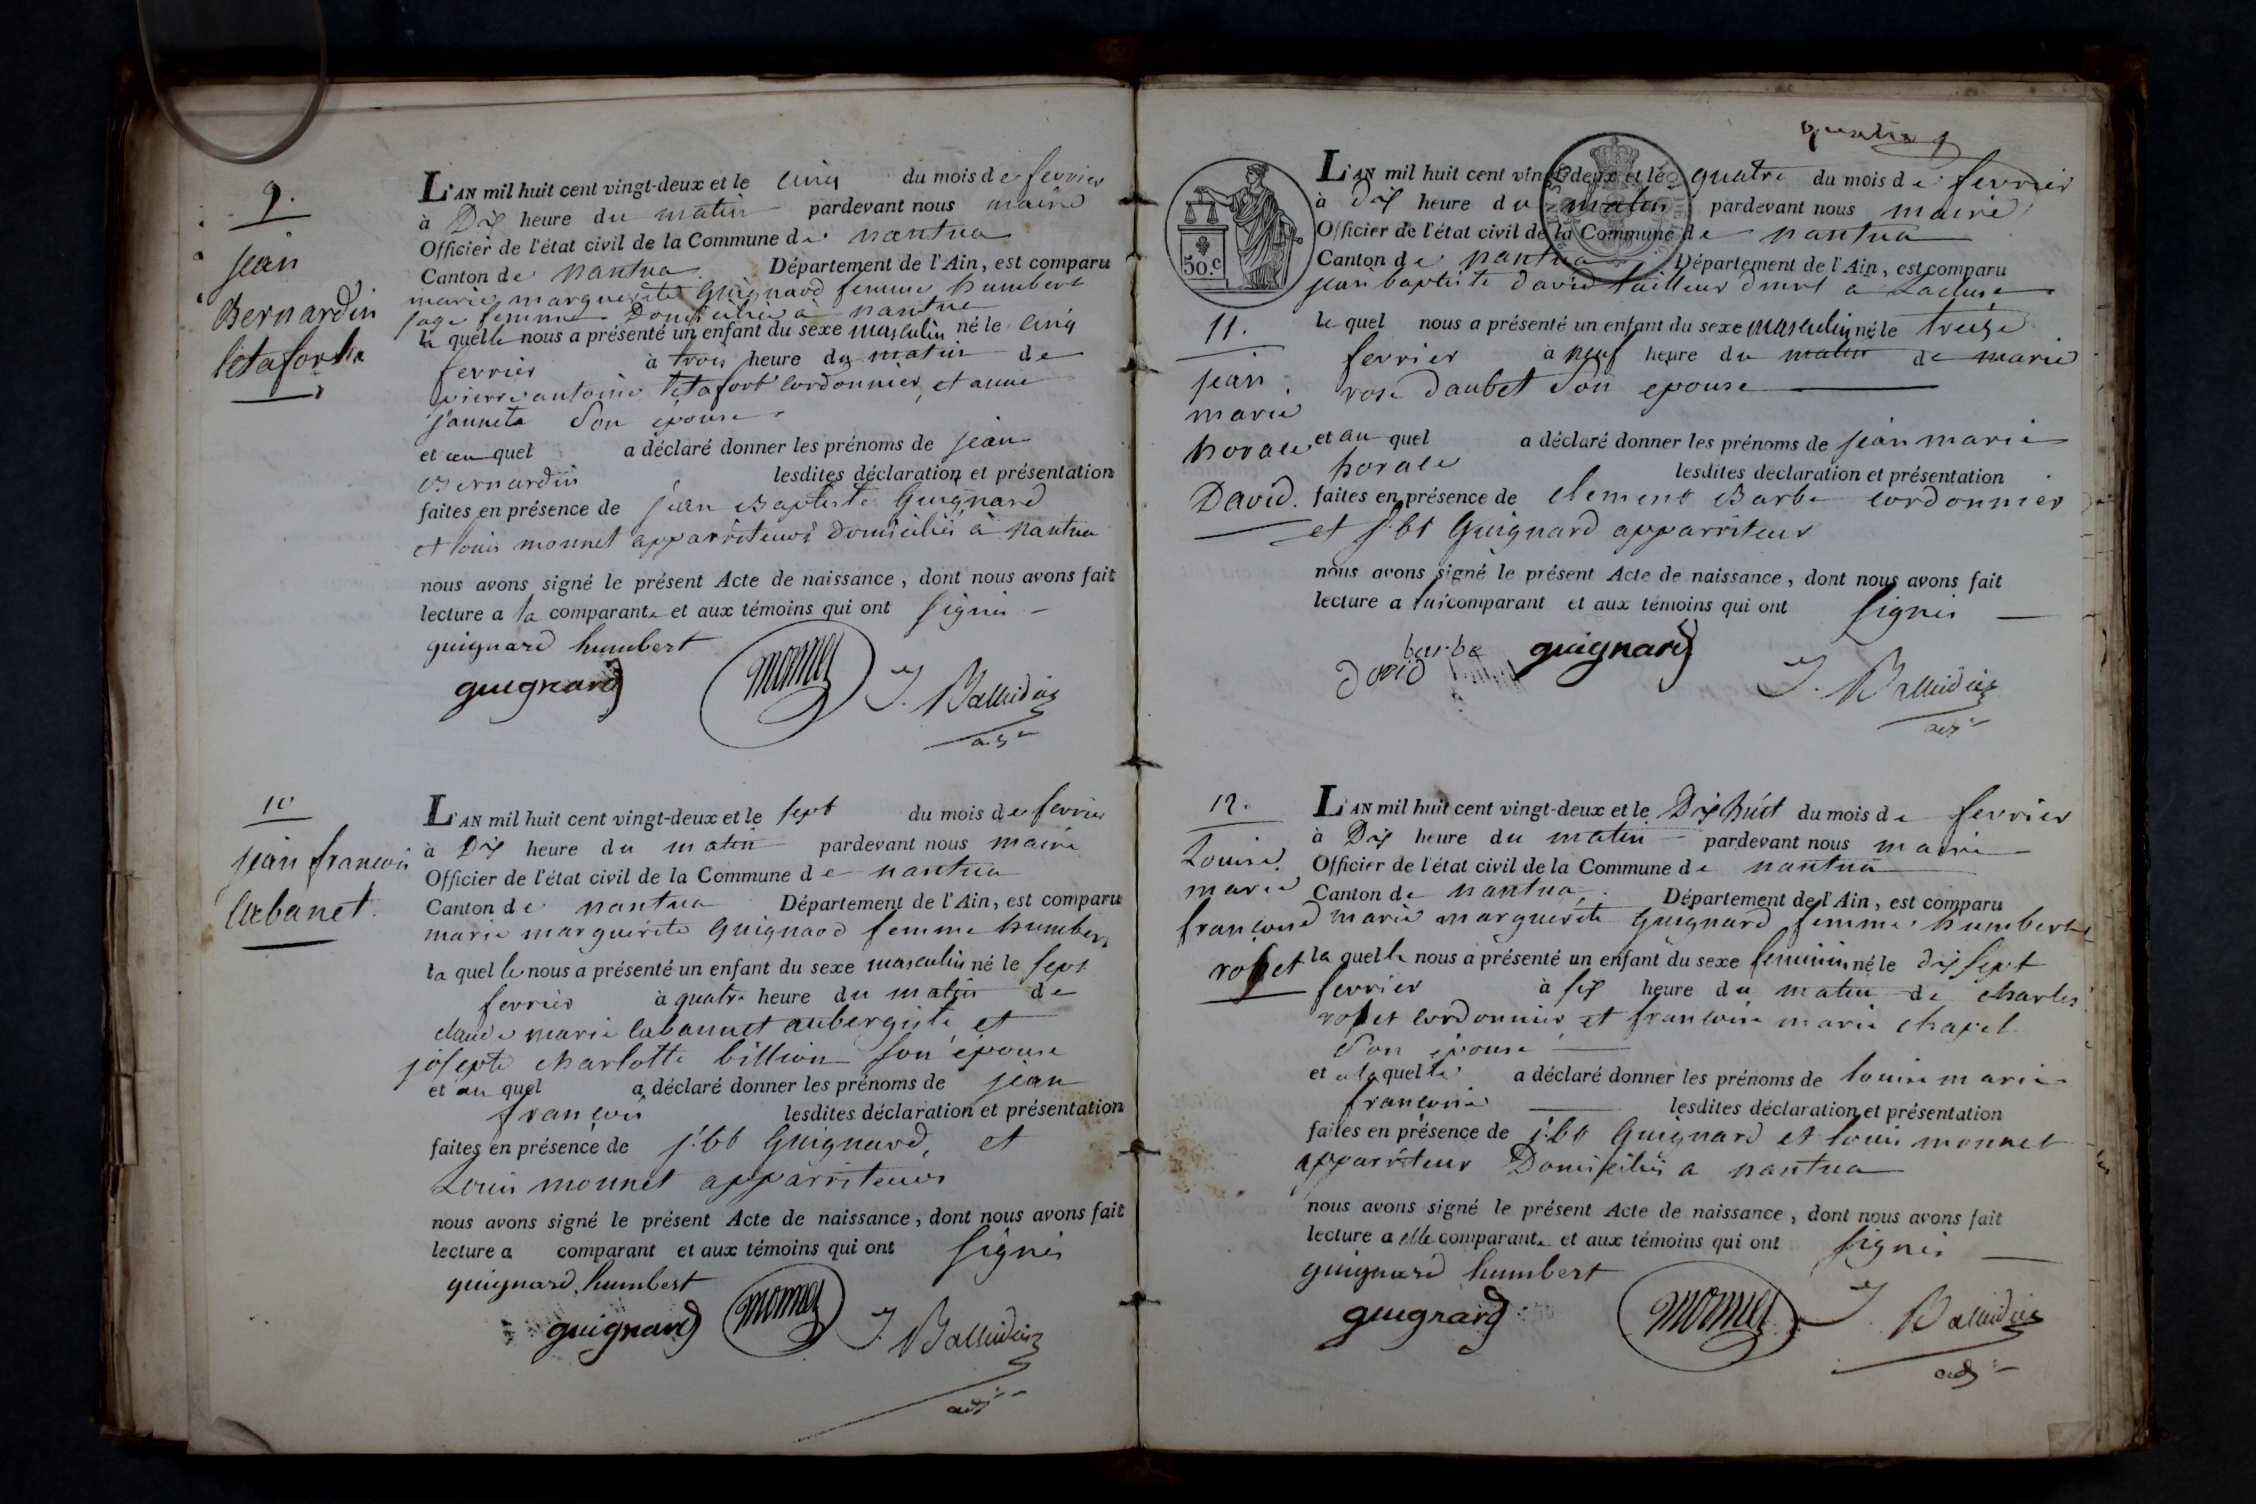 9.
jean
Bernardin
létaforta
L'AN mil huit cent vingt-deux et le cinq du mois de fevrier
à Dix heure du matin pardevant nous maire
Officier de l'état civil de la Commune de nantua
Canton de nantua Département de l'Ain, est comparu
marie marguerite Guignard femme humbert
sage femme Domiciliée à nantua
la quelle nous a présenté un enfant du sexe masculin né le cinq
fevrier à trois heure du matin de
pierre antoine létafort cordonnier et anne
janneta son epouse
et au quel a déclaré donner les prénoms de jean
Bernardin lesdites déclaration et présentation
faites en présence de jean Baptiste Guignard
et louis monnet apparriteurs domiciliés à nantua
nous avons signé le présent Acte de naissance, dont nous avons fait
lecture a la comparante et aux témoins qui ont signés
guignard humbert
guignard monnet J.
10
jean francois
Cabanet
L'AN mil huit cent vingt-deux et le sept du mois de fevrier
à Dix heure du matin pardevant nous maire
Officier de l'état civil de la Commune de nantua
Canton de nantua Département de l'Ain, est comparu
marie marguerite Guignard femme humbert
la quel le nous a présenté un enfant du sexe masculin né le sept
fevrier à quatre heure du matin de
claude marie cabannet aubergiste et
josepte charlotte billion son épouse
et au quel a déclaré donner les prénoms de jean
francois lesdites déclaration et présentation
faites en présence de j. bt Guignard, et
Louis monnet apparriteurs
nous avons signé le présent Acte de naissance, dont nous avons fait
lecture a comparant et aux témoins qui ont signés
guignard humbert
guignard monnet J.
quatre
50.c
11.
jean
marie
horace
David.
L'AN mil huit cent vingt-deux et le quatre du mois de fevrier
à dix heure du matin pardevant nous maire
Officier de l'état civil de la Commune de nantua
Canton de nantua Département de l'Ain, est comparu
jean baptiste david tailleur dmrt a Lacluse
le quel nous a présenté un enfant du sexe masculin né le treize
fevrier à neuf heure du matin de marie
rose daubet son epouse
et au quel a déclaré donner les prénoms de jean marie
horace lesdites déclaration et présentation
faites en présence de clement Barbe cordonnier
et j. bt Guignard apparriteur
nous avons signé le présent Acte de naissance, dont nous avons fait
lecture a comparant et aux témoins qui ont signés
barbe guignard
david J.
12.
Louise
marie
francoise
rosset
L'AN mil huit cent vingt-deux et le Dix huit du mois de fevrier
à Dix heure du matin pardevant nous maire
Officier de l'état civil de la Commune de nantua
Canton de nantua Département de l'Ain, est comparu
marie marguerite Guignard femme humbert
la quelle nous a présenté un enfant du sexe feminin né le dix sept
fevrier à six heure du matin de charles
rosset cordonnier et francoise marie chapel
son épouse
et a laquelle a déclaré donner les prénoms de louise marie
francoise lesdites déclaration et présentation
faites en présence de j. bt Guignard et louis monnet
apparriteur Domiciliés a nantua
nous avons signé le présent Acte de naissance, dont nous avons fait
lecture a elle comparante et aux témoins qui ont signés
guignard humbert
guignard monnet J.